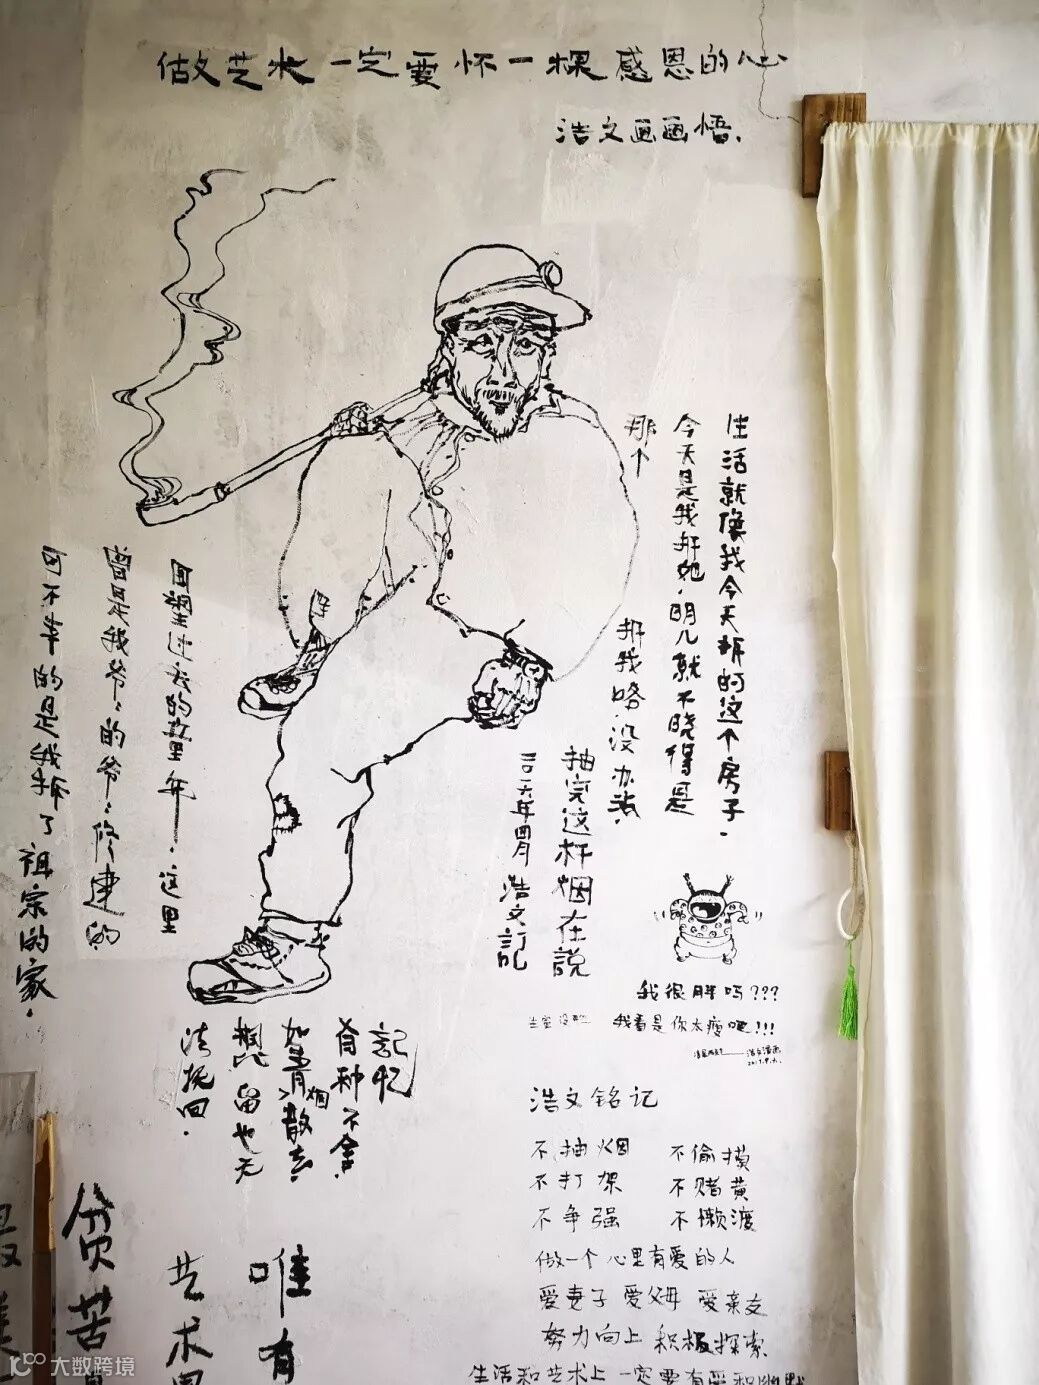 做艺术一定要怀一棵感恩的心
浩文画画悟.
生活就像我今天拆的这个房子.
今天是我拆她.明儿就不晓得是
那个
拆我咯.没办法.
抽完这杆烟在説
浩文訂記
回望过去的
这里
曾是我爷:的爷:修建的
可不幸的是我拆了祖宗的家.
我很胖吗???
我看是你太瘦吧!!!
記忆
有种不舍.
如青烟散去
留也无
法挽回.
浩文铭记
不抽烟 不偷摸
不打架 不赌黄
不争强 不懒渡
做一个心里有爱的人
爱妻子 爱父母 爱亲友
努力向上 积极探索.
生活和艺术上 一定要有
唯有
艺术
贫苦
大数跨境